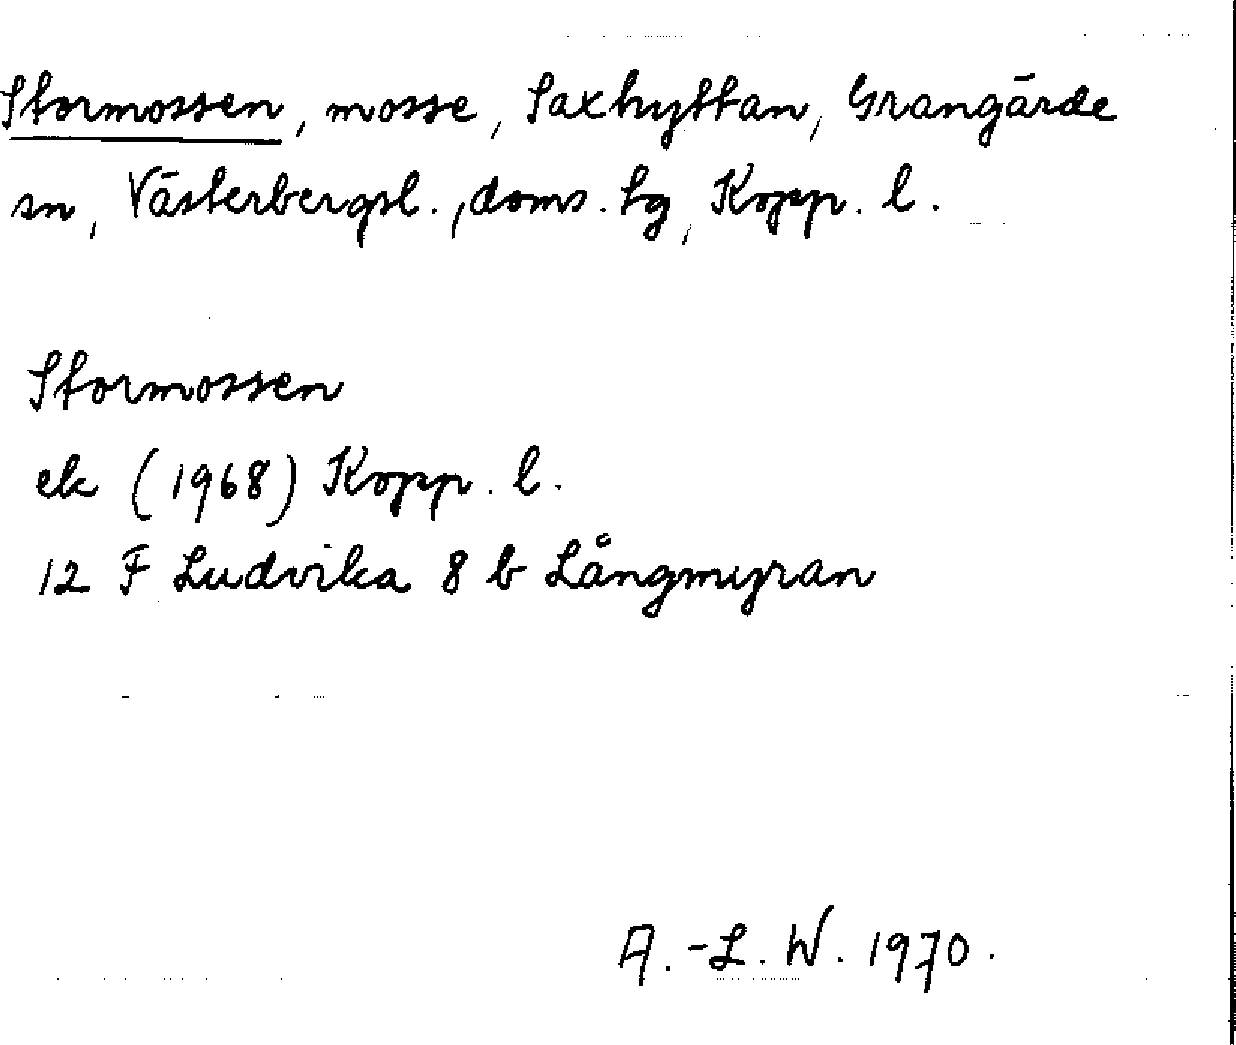 Stormossen, mosse, Saxhyttan, Grangärde
sn, Västerbergsl., doms. tg, Kopp. l.
Stormossen
ek (1968) Kopp. l.
12 F Ludvika 8 b Långmyran
A.-L. W. 1970.